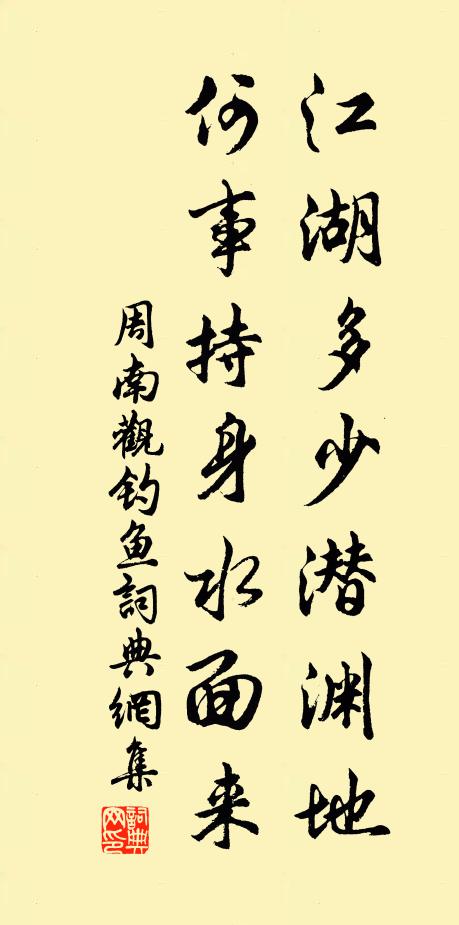 江湖多少潜渊地
何事持身水面来
周南觀钓鱼詞典網集
詞典网印